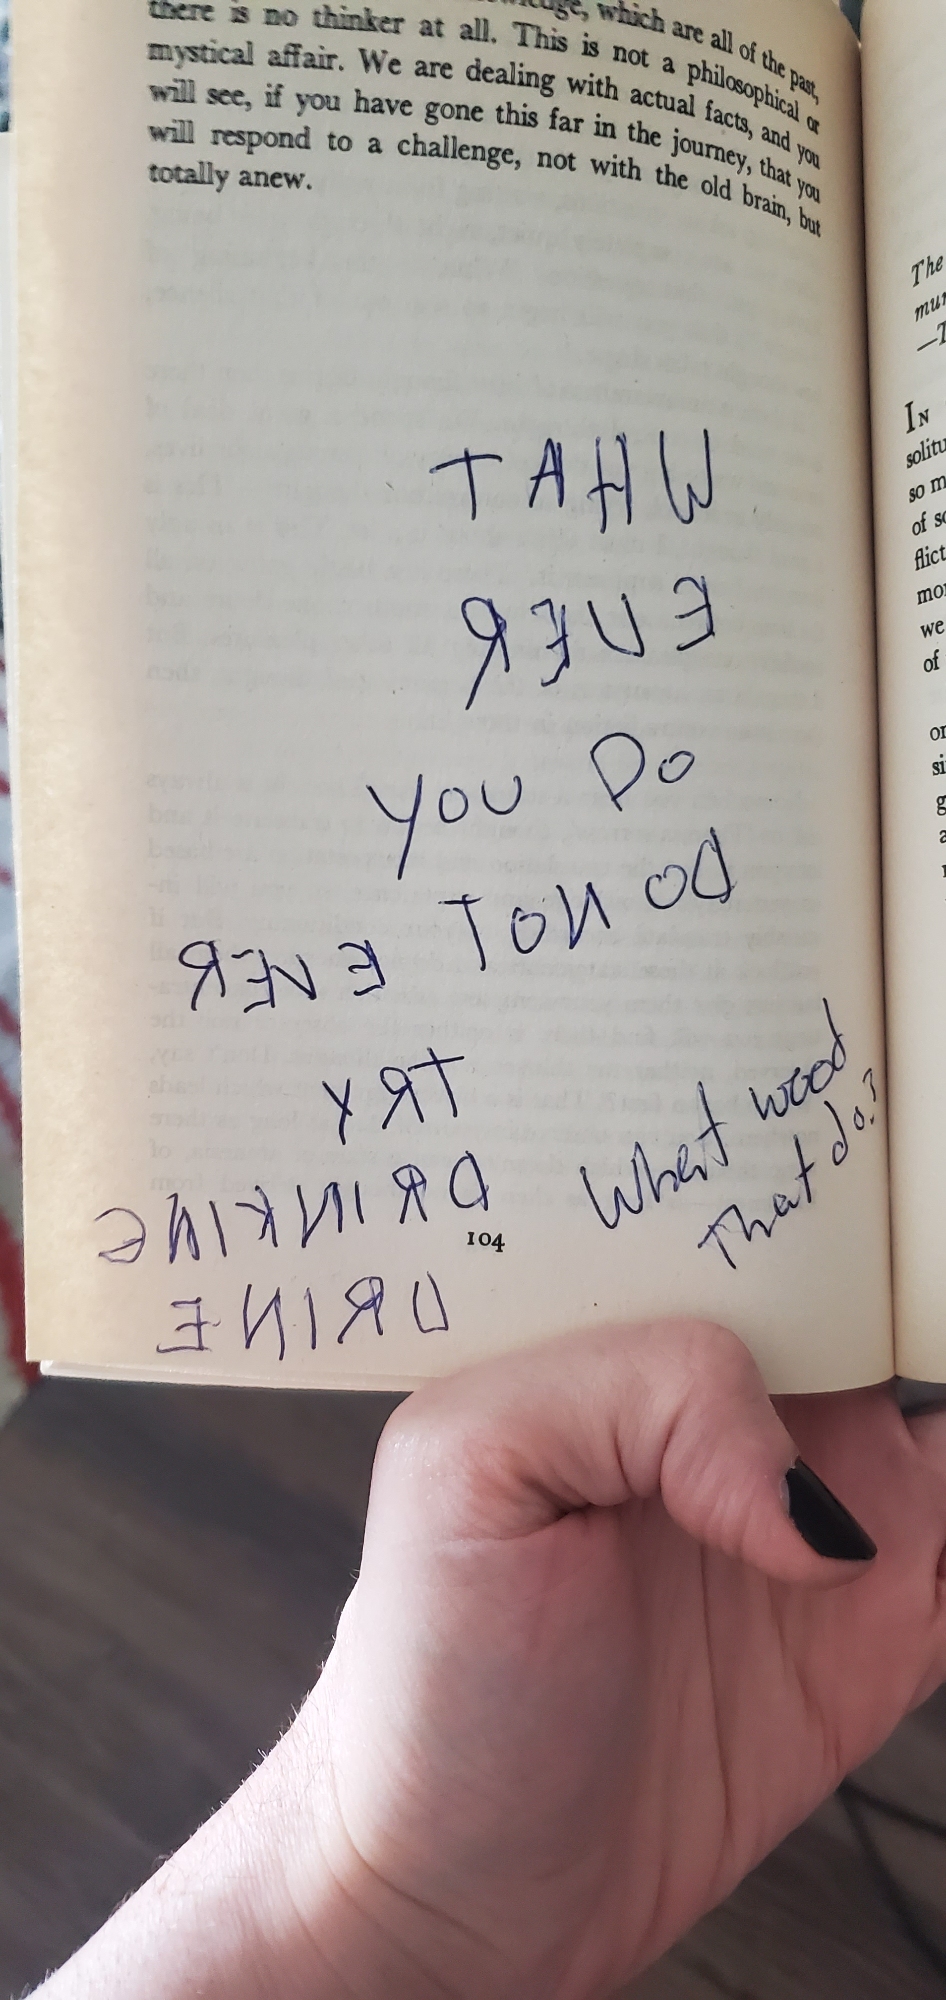 which are all of the past,
there is no thinker at all. This is not a philosophical or
mystical affair. We are dealing with actual facts, and you
will see, if you have gone this far in the journey, that you
will respond to a challenge, not with the old brain, but
totally anew.
WHAT
EVER
YOU DO
DO NOT EVER
TRY
DRINKING
URINE
What wood
that do?
104
The
—T
IN
solitu
so m
of so
flict
mor
we
of
or
si
g
a